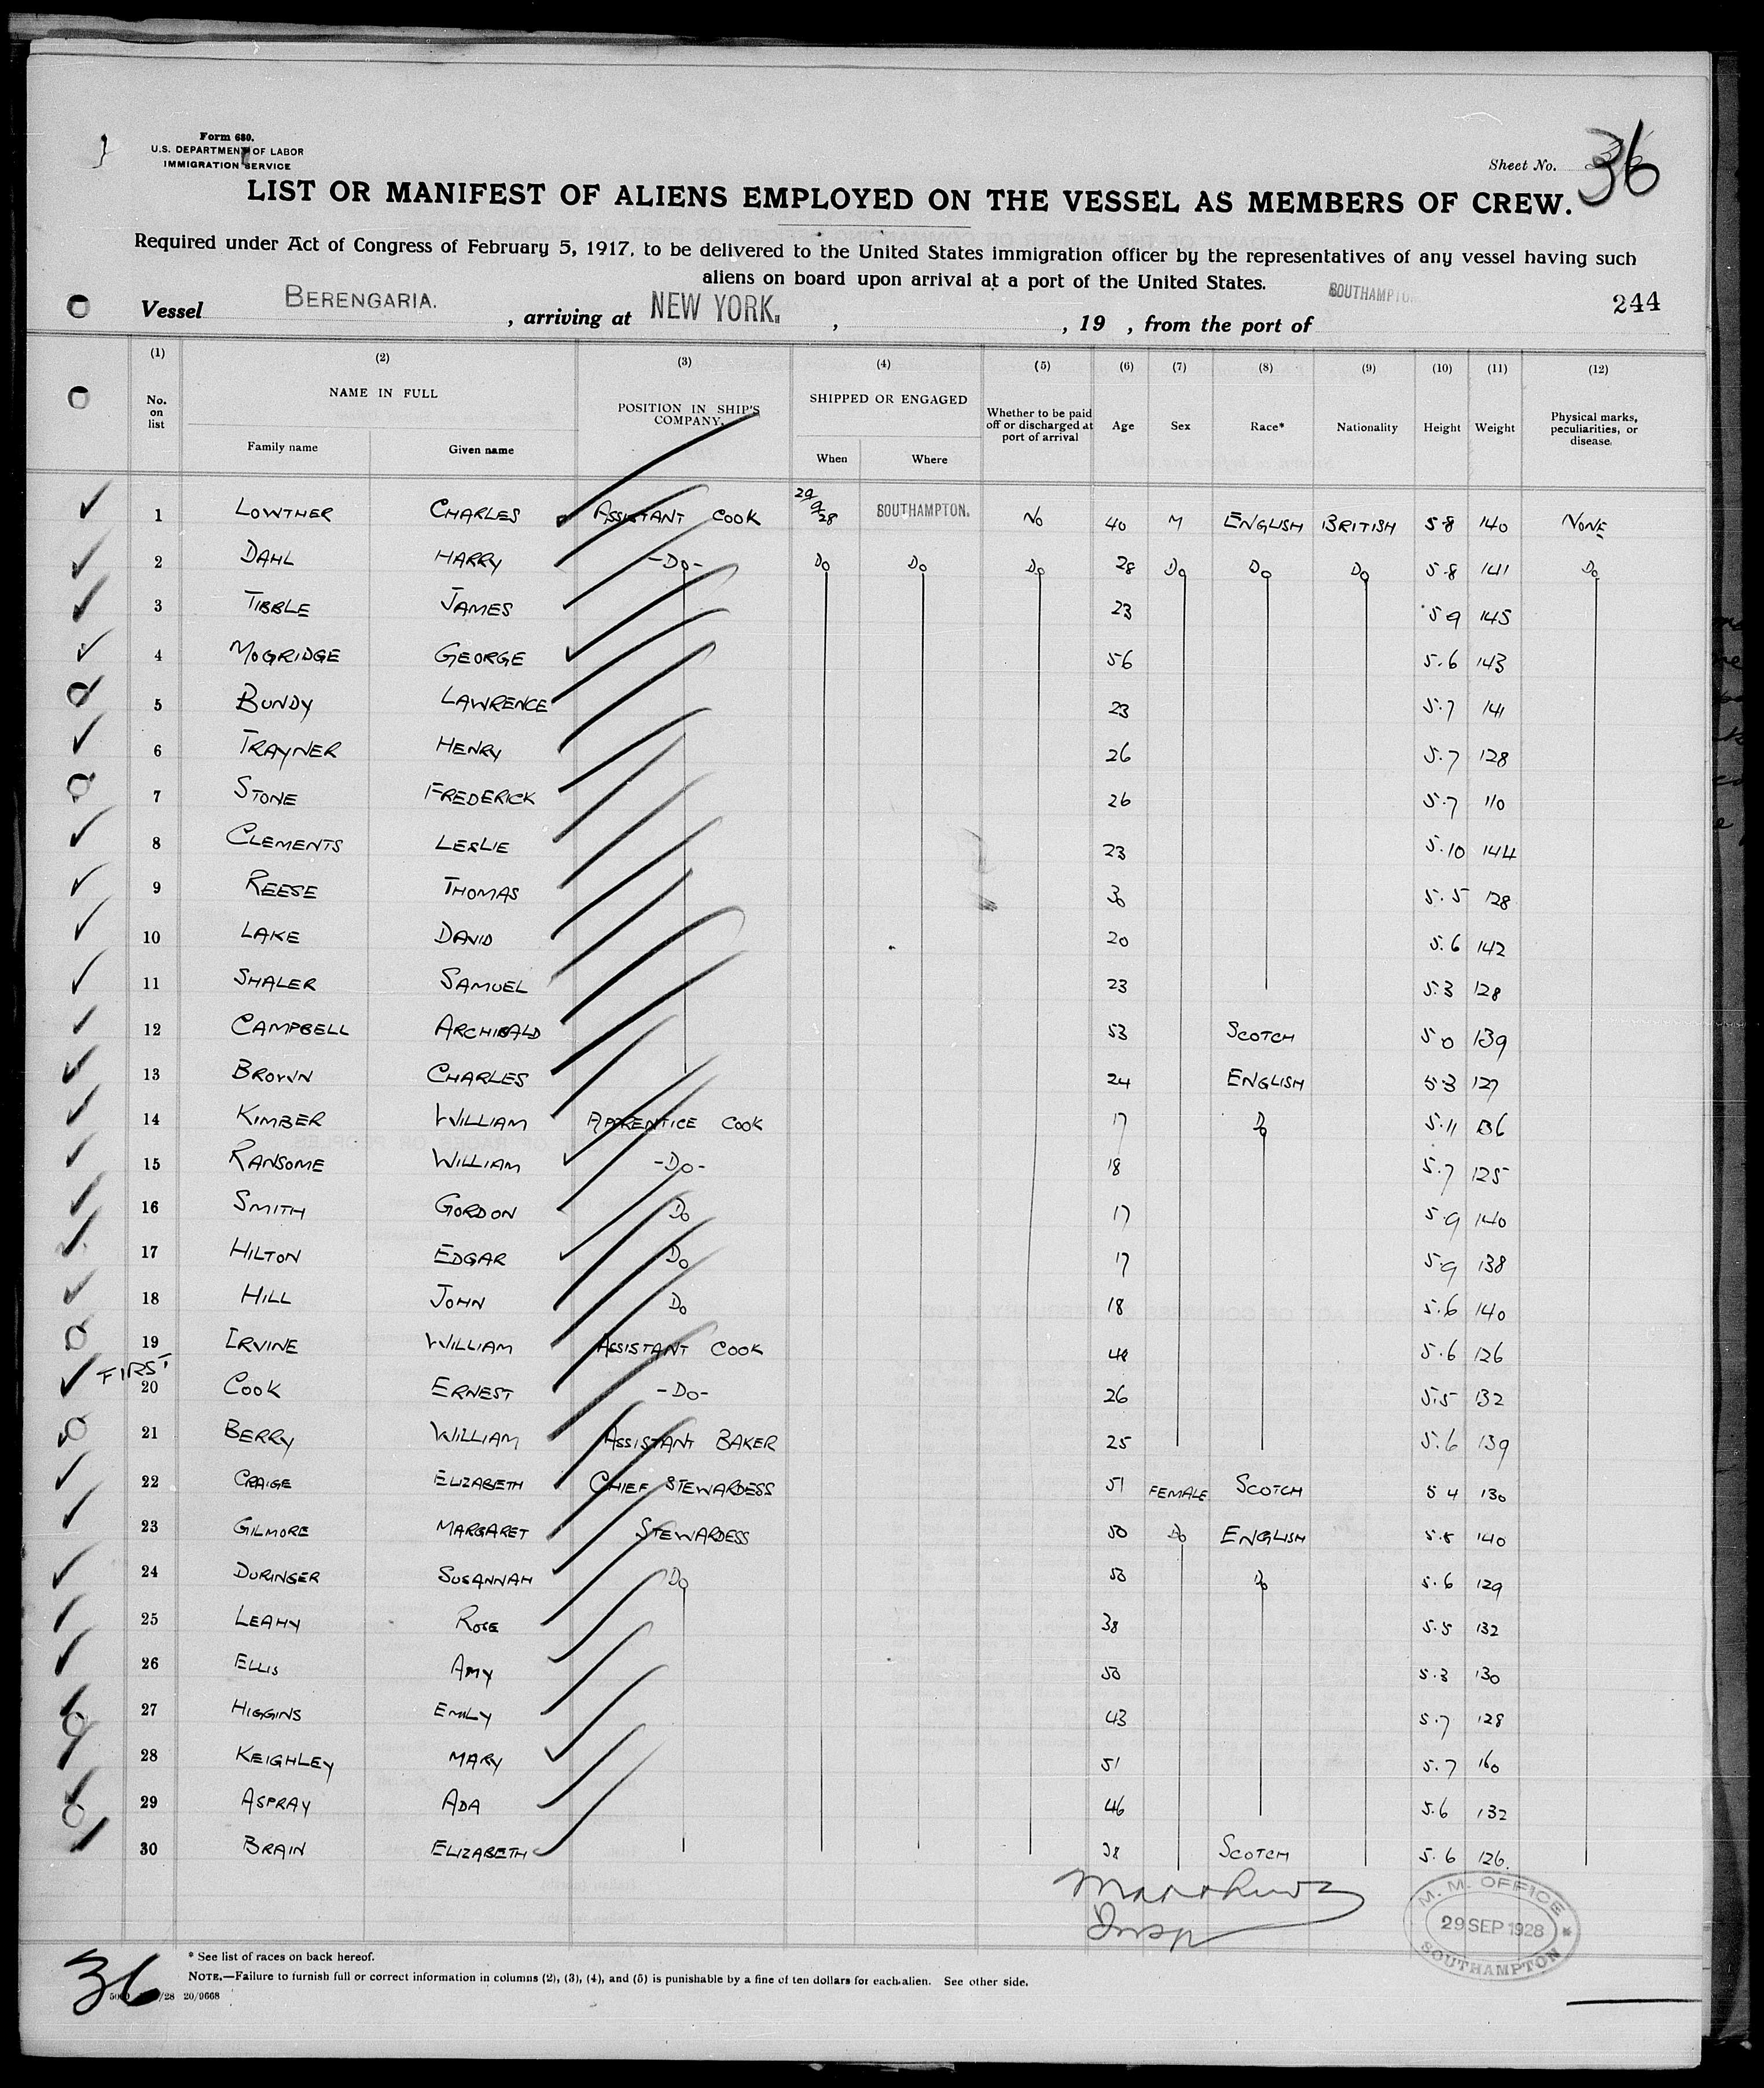 Form 680.
U.S. DEPARTMENT OF LABOR
IMMIGRATION SERVICE
Sheet No. 36
LIST OR MANIFEST OF ALIENS EMPLOYED ON THE VESSEL AS MEMBERS OF CREW.
Required under Act of Congress of February 5, 1917, to be delivered to the United States immigration officer by the representatives of any vessel having such
aliens on board upon arrival at a port of the United States.
Vessel BERENGARIA. , arriving at NEW YORK. , , 19 , from the port of SOUTHAMPTO 244
(1) (2) (3) (4) (5) (6) (7) (8) (9) (10) (11) (12)
No. on list NAME IN FULL Family name Given name POSITION IN SHIP'S COMPANY. SHIPPED OR ENGAGED When Where Whether to be paid off or discharged at port of arrival Age Sex Race* Nationality Height Weight Physical marks, peculiarities, or disease.
1 LOWTHER CHARLES ASSISTANT COOK 29/9/28 SOUTHAMPTON. NO 40 M ENGLISH BRITISH 5-8 140 NONE
2 DAHL HARRY -DO- DO DO DO 28 DO DO DO 5.8 141 DO
3 TIBBLE JAMES 23 5 9 145
4 MOGRIDGE GEORGE 56 5.6 143
5 BUNDY LAWRENCE 23 5.7 141
6 TRAYNER HENRY 26 5.7 128
7 STONE FREDERICK 26 5.7 110
8 CLEMENTS LESLIE 23 5.10 144
9 REESE THOMAS 30 5.5 128
10 LAKE DAVID 20 5.6 142
11 SHALER SAMUEL 23 5.3 128
12 CAMPBELL ARCHIBALD 53 SCOTCH 5 0 139
13 BROWN CHARLES 24 ENGLISH 5.3 127
14 KIMBER WILLIAM APPRENTICE COOK 17 DO 5.11 136
15 RANSOME WILLIAM -DO- 18 5.7 125
16 SMITH GORDON DO 17 5.9 140
17 HILTON EDGAR DO 17 5.9 138
18 HILL JOHN DO 18 5.6 140
19 IRVINE WILLIAM ASSISTANT COOK 5.6 126
FIRST
20 COOK ERNEST -DO- 26 5.5 132
21 BERRY WILLIAM ASSISTANT BAKER 25 5.6 139
22 CRAIGE ELIZABETH CHIEF STEWARDESS 51 FEMALE SCOTCH 5 4 130
23 GILMORE MARGARET STEWARDESS 50 DO ENGLISH 5.8 140
24 DURINGER SUSANNAH DO 50 DO 5.6 129
25 LEAHY ROSE 38 5.5 132
26 ELLIS AMY 50 5.3 130
27 HIGGINS EMILY 43 5.7 128
28 KEIGHLEY MARY 51 5.7 160
29 ASPRAY ADA 46 5.6 132
30 BRAIN ELIZABETH 38 SCOTCH 5.6 126.
Insp
M. M. OFFICE
29 SEP 1928
SOUTHAMPTON
* See list of races on back hereof.
NOTE.—Failure to furnish full or correct information in columns (2), (3), (4), and (5) is punishable by a fine of ten dollars for each alien. See other side.
36
/28 20/9668